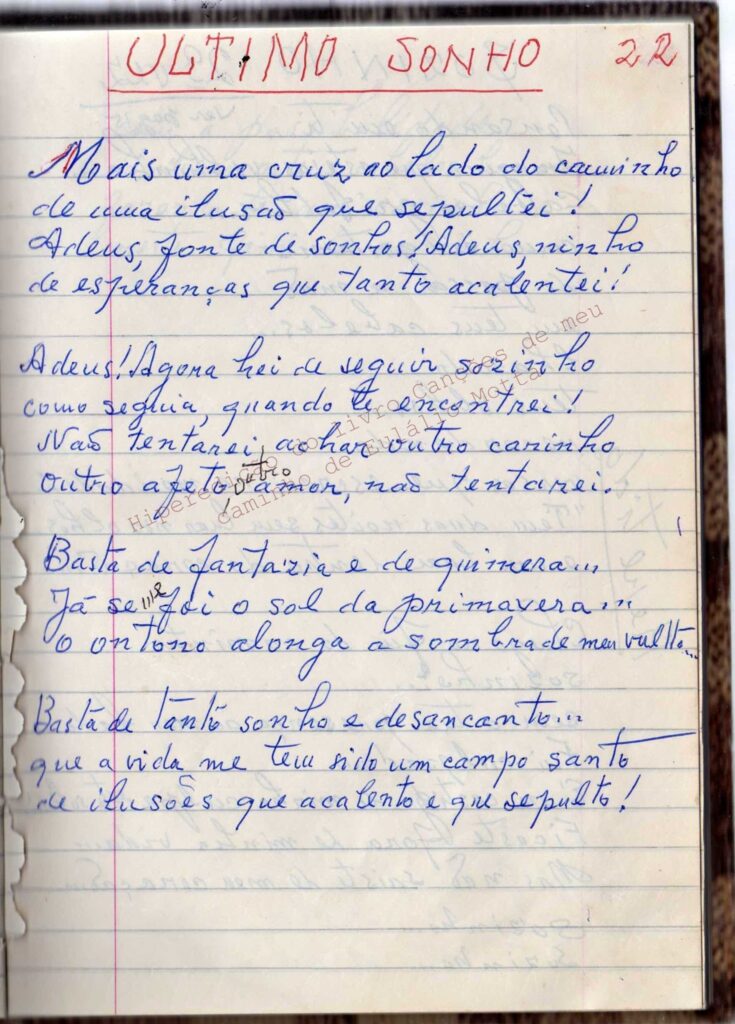 ULTIMO SONHO 22
Mais uma cruz ao lado do caminho
de uma ilusão que sepultei!
Adeus, fonte de sonhos! Adeus, ninho
de esperanças que tanto acalentei!
Adeus! Agora hei de seguir sozinho
como seguia, quando te encontrei!
Não tentarei achar outro carinho
outro afeto, outro amor, não tentarei.
Basta de fantazia e de quimera...
Já se me foi o sol da primavera...
o outono alonga a sombra de meu vulto...
Basta de tanto sonho e desancanto...
que a vida me tem sido um campo santo
de ilusões que acalento e que sepulto!
Hiperedição do livro Canções de meu
caminho de Eulálio Motta